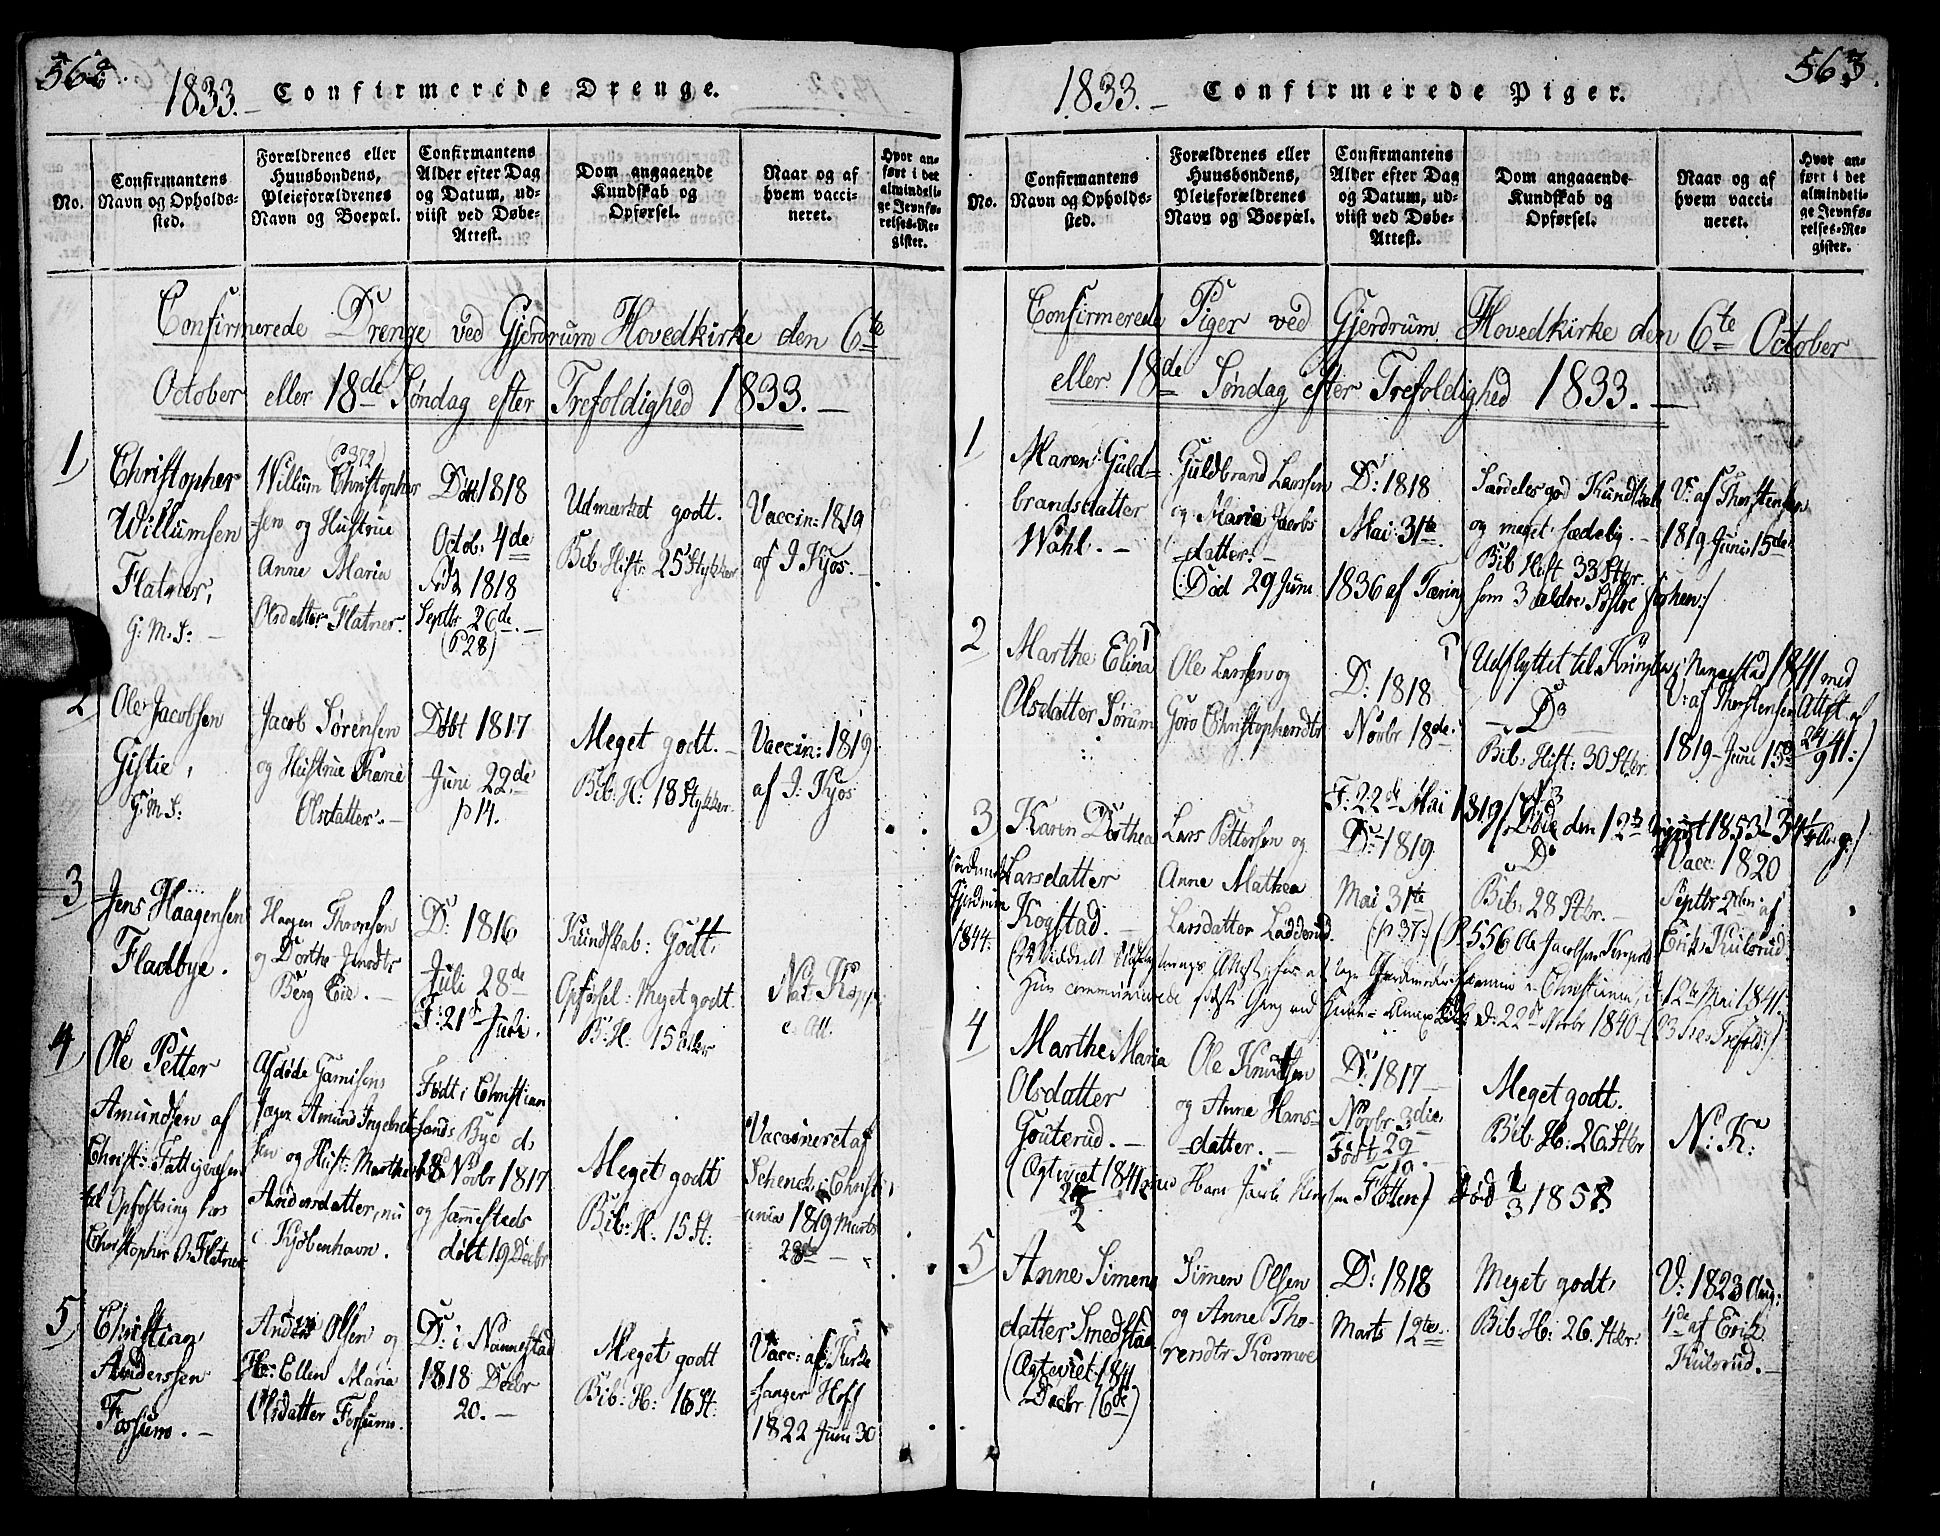 562.
1833.– Confirmerede Drenge.
No.
Confirmantens
Navn og Opholds-
sted.
Forældrenes eller
Huusbondens,
Pleieforældrenes
Navn og Boepæl.
Confirmantens
Alder efter Dag
og Datum, ud-
viist ved Døbe-
Attest.
Dom angaaende
Kundskab og
Opførsel.
Naar og af
hvem vacci-
neret.
Hvor an-
ført i det
almindeli-
ge Jevnfø-
relses-Re-
gister.
Confirmerede Drenge ved Gjerdrum Hovedkirke den 6te
October eller 18de Søndag efter Trefoldighed 1833.–
1
Christopher
Willumsen
Flatner,
G: M: S: –
(P 372)
Willum Christopher
sen og Hustrue
Anne Maria
Olsdatter Flatner.
Døbt 1818
Octob: 4de
1818
Septbr 26de.–
(P28)
Udmærket godt.
Bib. Hist: 25 Stykker
Vaccin: 1819
af J. Kyos.–
2
Ole Jacobsen
Gistie,
G: M: S:
Jacob Sørensen
og Hustrue Kari
Olsdatter.–
Døbt 1817
Juni 22de
p 14.
Meget godt.–
Bib: H: 18 Stykker.
Vaccin: 1819
af J. Kyos
3
Jens Haagensen
Fladbye.
Haagen
og Dorthe
Berg Eie.–
D: 1816
Juli 28de
F: 21de Juli.
Kundskab: Godt,
Opførsel: Meget godt
B: H: 15 Stkr
Nat: Kopp
4
Ole Petter
Amundsen af
Christ: Fattigvæsen
til Opfostring hos
Christopher O: Flatner
Afdøde
Jæger Amund Ingebret
sen og Hust: Marthe
Andersdatter, nu
i Kjøbenhavn.
Født i Christian
sands Bye d.
18de Novbr 1817
og sammesteds
døbt 19 Decbr
Meget godt
Bib: H: 15 St:
Vaccineret af
Schenck i Christi
ania 1819 Marts
28de –
5
Christian
Anderssen
Fossum.–
Anders Olsen og
H: Ellen Maria
Olsdatter Forsum.
D: i Nannestad
1818 Decbr
20.–
Meget godt
Bib: H: 16 St:
Vacc: af Kirke
sanger Hoff
1822 Juni 30
563.
1833.– Confirmerede Piger.
No.
Confirmantens
Navn og Opholds-
sted.
Forældrenes eller
Huusbondens,
Pleieforældrenes
Navn og Boepæl.
Confirmantens
Alder efter Dag
og Datum, ud-
viist ved Døbe-
Attest.
Dom angaaende
Kundskab og
Opførsel.
Naar og af
hvem vacci-
neret.
Hvor an-
ført i det
almindeli-
ge Jevnfø-
relses-Re-
gister.
Confirmerede Piger ved Gjerdrum Hovedkirke den 6te October
eller 18de Søndag efter Trefoldighed 1833.–
1
Maren Guld-
brandsdatter
Wahl.–
Guldbrand Larssen
og Maria Jacobs
datter.–
D: 1818
Mai 31te
Særdeles god Kundskab
og meget sædelig.–
Bib Hist 33 Stkr.
V: af Thorstensen
1819 Juni 15de
(: Død 29 Juni 1836 af Tæring som 3 ældre Søstre forhen :)
2
Marthe Elina
Olsdatter Sørum
Ole Larssen og
Goro Christophersdtr
D: 1818
Novbr 18de
(Udflyttet til Kringler i Nannestad 1841 med
Attst. af
24/9 41:)
– Do
Bib: Hist: 30 Stkr.
V: af Thorstensen
1819 Juni 15de
3
Karen Dorthea
Larsdatter
Kogstad.–
1844.
Lars Pettersen og
Anne Mathea
Larsdatter
F: 22de Mai 1819 / Døde den 12te August 1853
D: 1819
Mai 31te
(p 37:)
Do
Bib: 28 Stkr.–
Vacc: 1820
Septbr 2den af
Erik Kulsrud
(P. 556 Ole Jacobsen
Christiania, d: 12te Mai 1841.
Hun communicerede første Gang ved d: 22de Novbr 1840
4
Marthe Maria
Olsdatter
Gouterud.–
Ole Knudsen
og Anne Hans-
datter.–
D: 1817
Novbr 3die
Født 29/10.–
Meget godt.
Bib: H: 26 Stkr
N: K:
(Ægteviet 1841 Hans Jacob) Død 1/3 1858
5
Anne Simens
datter Smedstad
(Ægteviet 1841
Decbr 16de)
Simen Olsen
og Anne Tho-
resdtr Korsmoe
D: 1818
Marts 12te.
Meget godt,
Bib: H: 26 Stkr.
V: 1823 Aug:
4de af Erik
Kulsrud.–